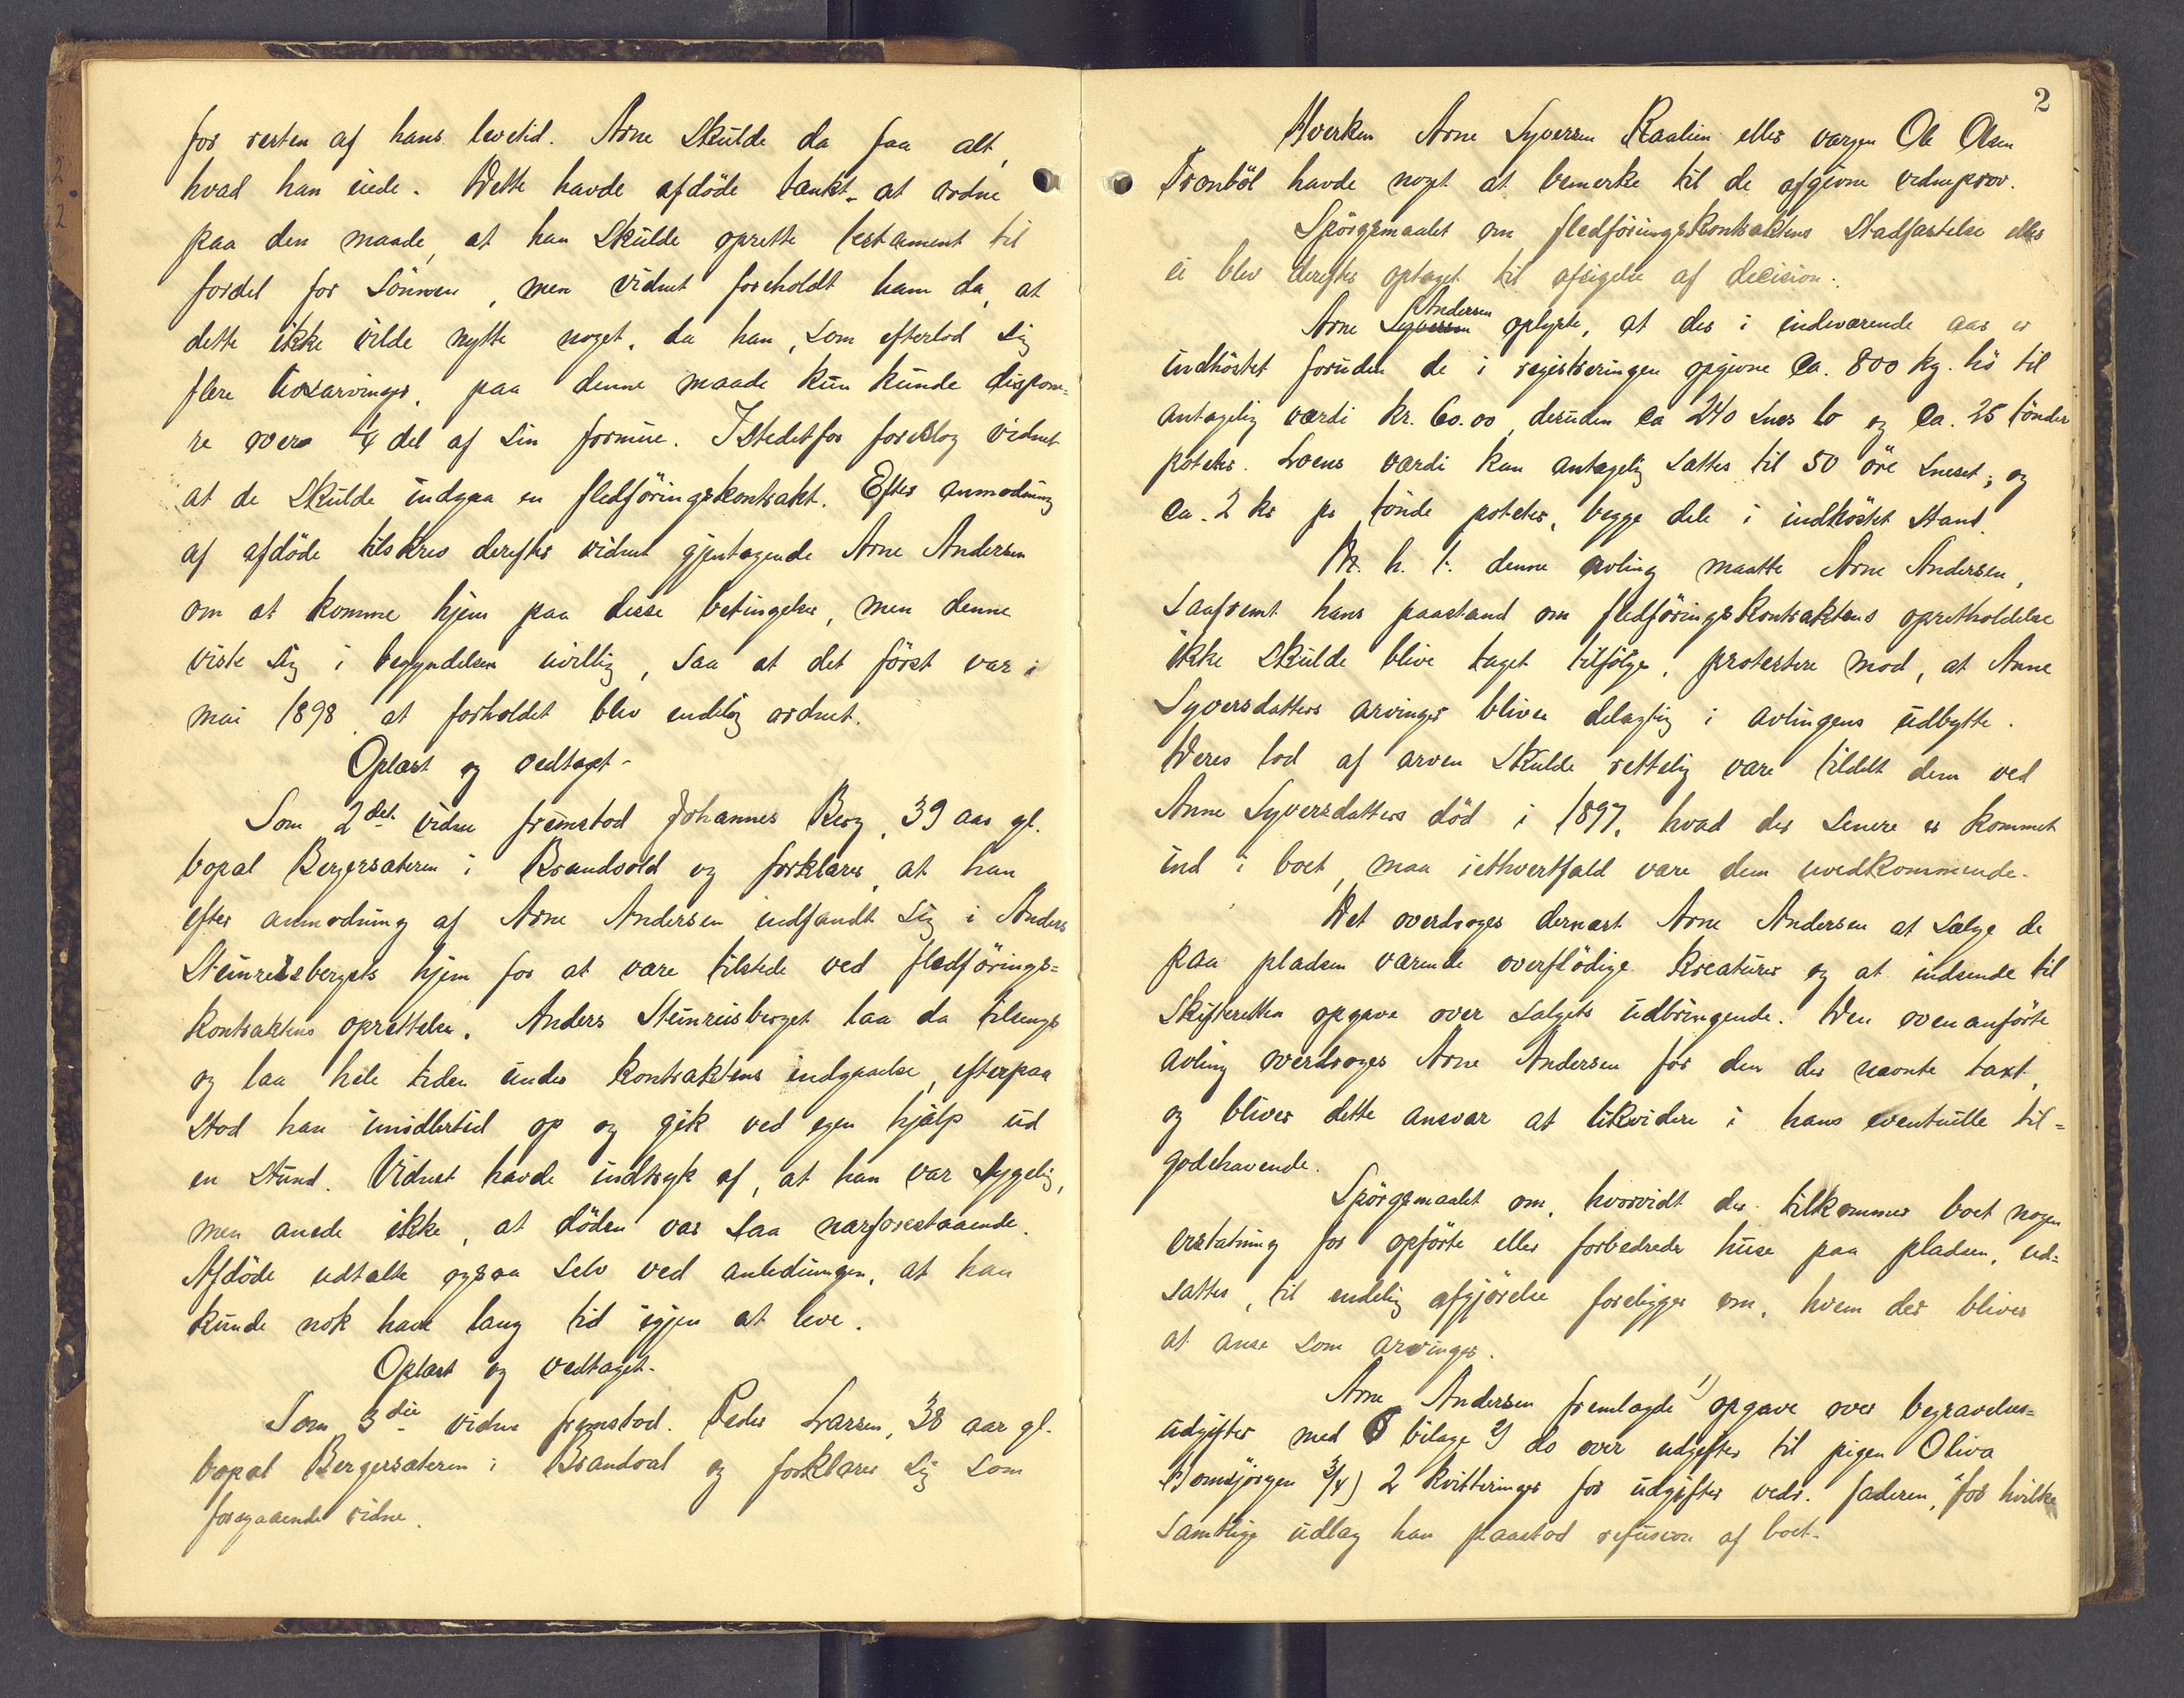 for resten af hans levetid. Arne skulde da faa alt,
hvad han eiede. Dette havde afdöde tænkt at ordne
paa den maade, at han skulde oprette testament til
fordel for sönnen, men vidnet foreholdt ham da, at
dette ikke vilde nytte noget, da han, som efterlod sig
flere livsarvinger, paa denne maade kun kunde dispone-
re over ¼ del af sin formue. Istedetfor foreslog vidnet
at de skulde indgaa en fledföringskontrakt. Efter anmodning
af afdöde tilskrev derefter vidnet gjentagende Arne Andersen
om at komme hjem paa disse betingelser, men denne
viste sig i begyndelsen uvillig, saa at det först var i
mai 1898 at forholdet blev endelig ordnet.
Oplæst og vedtaget.
Som 2det vidne fremstod Johannes Berg, 39 aar gl.
bopæl Bergersæteren i Brandvold og forklarer, at han
efter anmodning af Arne Andersen indfandt sig i Anders
Steinreisbergets hjem for at være tilstede ved fledförings=
kontraktens oprettelse. Anders Steinreisberget laa da tilsengs
og laa hele tiden under kontraktens indgaaelse, efterpaa
stod han imidlertid op og gik ved egen hjælp ud
en stund. Vidnet havde indtryk af, at han var sygelig,
men anede ikke, at döden var saa nærforestaaende.
Afdöde udtalte ogsaa selv ved anledningen, at han
kunde nok have lang tid igjen at leve.
Oplæst og vedtaget.
Som 3die vidne fremstod Peder Larsen, 38 aar gl.
bopæl Bergersæteren i Brandval og forklarer sig som
foregaaende vidne.
2
Hverken Arne Syversen Raalien eller værgen Ole Olsen
Tronböl havde noget at bemerke til de afgivne vidneprov.
Spörgsmaalet om fledföringskontraktens stadfæstelse eller
ei blev derefter optaget til afsigelse af decision.
Arne Syversen Andersen oplyste, at der i indeværende aar er
indhöstet foruden de i registreringen opgivne ca. 800 kg. hö til
antagelig værdi kr. 60.00, desuden ca 240 snes lo og ca. 25 tönder
poteter. Loens værdi kan antagelig sættes til 50 öre sneset, og
ca. 2 kr pr tönde poteter, begge dele i indhöstet stand.
M. h. t. denne avling maatte Arne Andersen,
saafremt hans paastand om fledföringskontraktens opretholdelse
ikke skulde blive taget tilfölge, protestere mod, at Anne
Syversdatters arvinger bliver delagtig i avlingens udbytte.
Deres lod af arven skulde rettelig være tildelt dem ved
Anne Syversdatters död i 1897, hvad der senere er kommet
ind i boet, maa iethvertfald være dem uvedkommende.
Det overdroges dernæst Arne Andersen at sælge de
paa pladsen værende overflödige kreaturer og at indsende til
skifteretten opgave over salgets udbringende. Den ovenanförte
avling overdroges Arne Andersen for den der nævnte taxt,
og bliver dette ansvar at likvidere i hans eventuelle til=
godehavende.
Spörgsmaalet om, hvorvidt der tilkommer boet nogen
erstatning for opförte eller forbedrede huse paa pladsen, ud=
sættes, til endelig afgjörelse foreligger om, hvem der bliver
at anse som arvinger.
Arne Andersen fremlagde 1) opgave over begravelses=
udgifter med bilage 2) do over udgifter til pigen Oliva
3/4) 2 kvitteringer for udgifter vedr. faderen, for hvilke
samtlige udlæg han paastod refusion af boet.